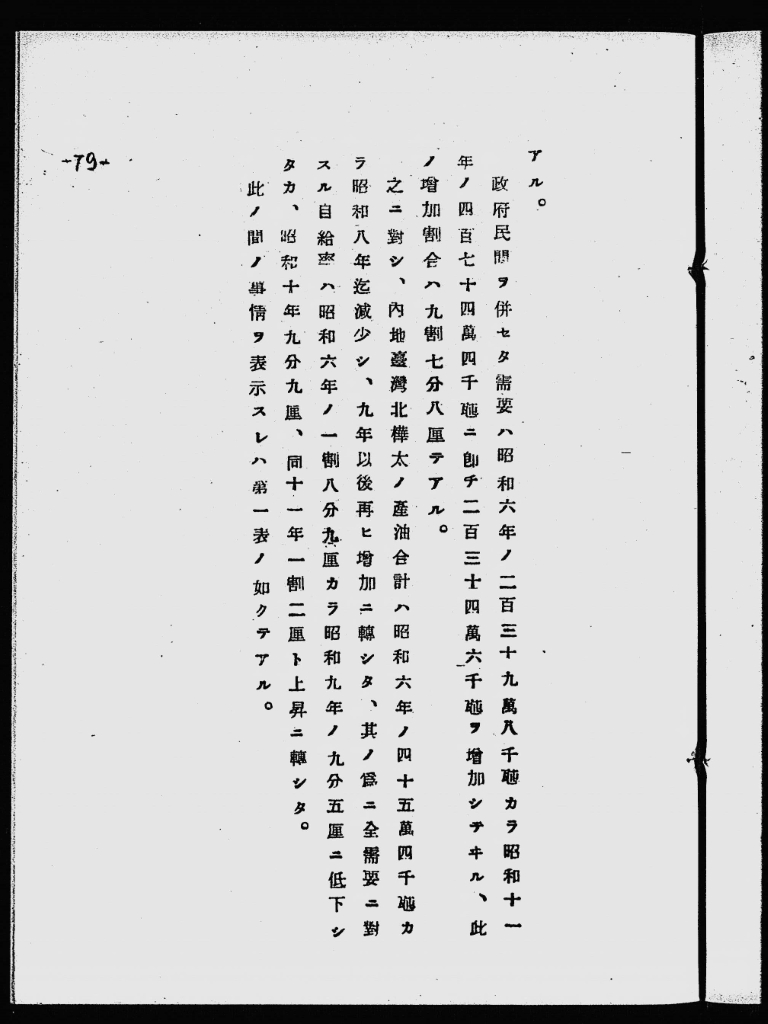 アル。
政府民間ヲ併セタ需要ハ昭和六年ノ二百三十九萬八千瓲カラ昭和十一
年ノ四百七十四萬四千瓲ニ卽チ二百三十四萬六千瓲ヲ增加シテヰル、此
ノ增加割合ハ九割七分八厘テアル。
之ニ對シ、內地臺灣北樺太ノ產油合計ハ昭和六年ノ四十五萬四千瓲カ
ラ昭和八年迄減少シ、九年以後再ヒ增加ニ轉シタ、其ノ爲ニ全需要ニ對
スル自給率ハ昭和六年ノ一割八分九厘カラ昭和九年ノ九分五厘ニ低下シ
タカ、昭和十年九分九厘、同十一年一割二厘ト上昇ニ轉シタ。
此ノ間ノ事情ヲ表示スレハ第一表ノ如クテアル。
-79-